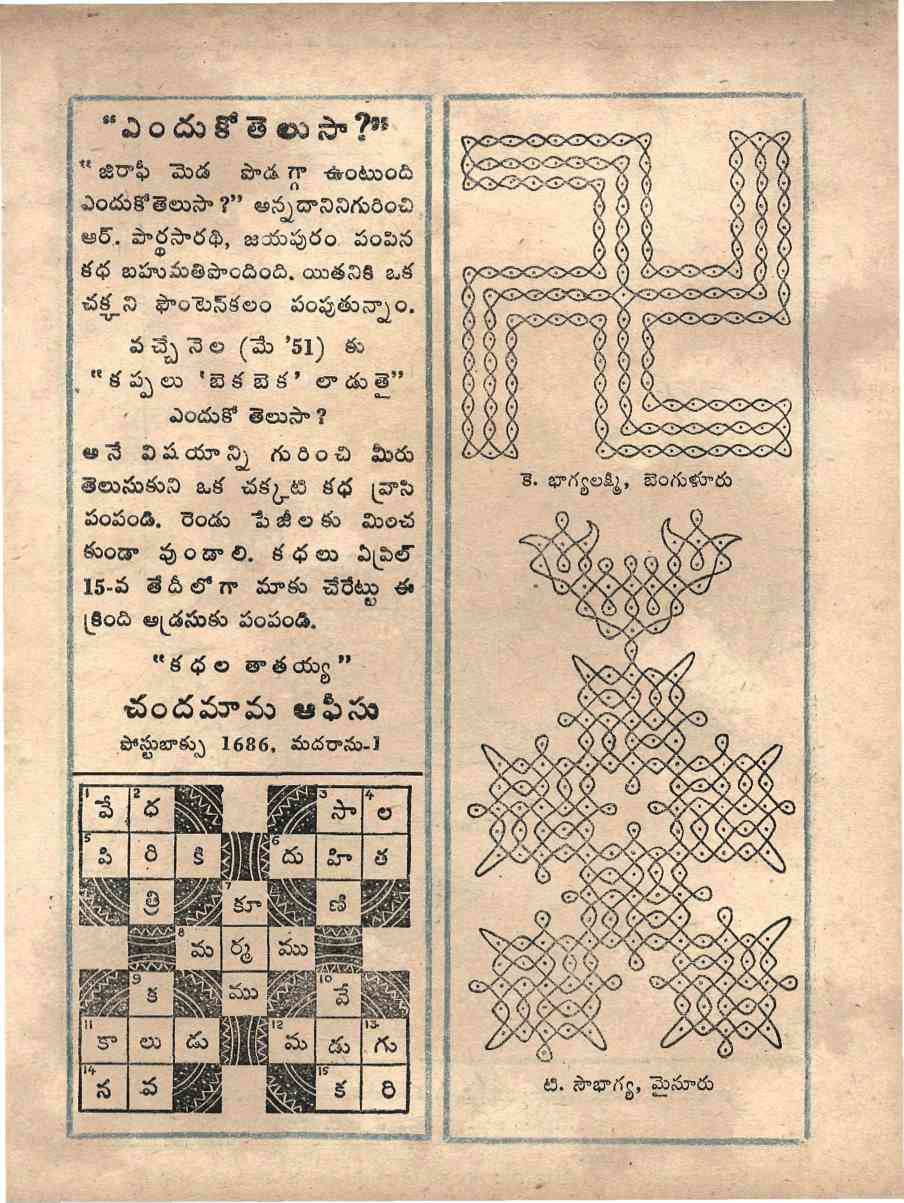 “ఎందుకోతెలుసా?”
“జిరాఫీ మెడ పొడగ్గా ఉంటుంది
ఎందుకోతెలుసా?” అన్నదానినిగురించి
ఆర్. పార్థసారథి, జయపురం పంపిన
కధ బహుమతిపొందింది. యితనికి ఒక
చక్కని ఫౌంటెన్‌కలం పంపుతున్నాం.
వచ్చే నెల (మే ’51) కు
“కప్పలు ‘బెకబెక’ లాడుతై”
ఎందుకో తెలుసా?
అనే విషయాన్ని గురించి మీరు
తెలుసుకుని ఒక చక్కటి కధ వ్రాసి
పంపండి. రెండు పేజీలకు మించ
కుండా వుండాలి. కధలు ఏప్రిల్
15-వ తేదీలోగా మాకు చేరేట్టు ఈ
క్రింది అడ్రసుకు పంపండి.
“కధల తాతయ్య”
చందమామ ఆఫీసు
పోస్టుబాక్సు 1686, మదరాసు-1
1 వే 2 ధ 3 సా 4 ల
5 పి రి కి 6 దు హి త
త్రి 7 కూ ణి
8 మ ర్మ ము
9 క ము 10 వే
11 కా లు డు 12 మ డు 13 గు
14 న వ 15 క రి
కె. భాగ్యలక్ష్మి, బెంగుళూరు
టి. సౌభాగ్య, మైసూరు